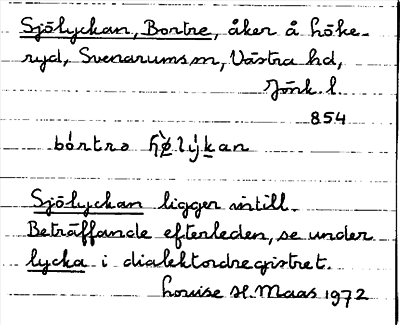 Sjölyckan, Bortre, åker å Höke-
ryd, Svenarums sn, Västra hd,
Jönk. l.
854
bórtrə
Sjölyckan ligger intill.
Beträffande efterleden, se under
lycka i dialektordregistret.
Louise H. Maas 1972